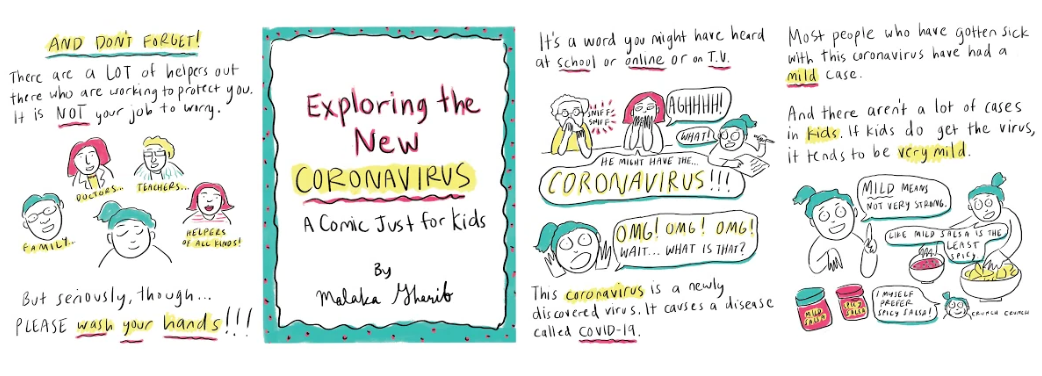 AND DON'T FORGET!
There are a LOT of helpers out
there who are working to protect you.
It is NOT your job to worry.
DOCTORS...
TEACHERS...
FAMILY...
HELPERS
OF ALL KINDS!
But seriously, though...
PLEASE wash your hands!!!
Exploring the
New
CORONAVIRUS
A Comic Just for Kids
By
Malaka Gharib
It's a word you might have heard
at school or online or on T.V.
SNIFF
SNIFF
AGHHHH!
WHAT!
HE MIGHT HAVE THE...
CORONAVIRUS!!!
OMG! OMG! OMG!
WAIT... WHAT IS THAT?
This coronavirus is a newly
discovered virus. It causes a disease
called COVID-19.
Most people who have gotten sick
with this coronavirus have had a
mild case.
And there aren't a lot of cases
in kids. If kids do get the virus,
it tends to be very mild.
MILD MEANS
NOT VERY STRONG.
LIKE MILD SALSA IS THE
LEAST
SPICY
MILD
SALSA
SPICY
SALSA
I MYSELF
PREFER
SPICY SALSA!
CRUNCH CRUNCH